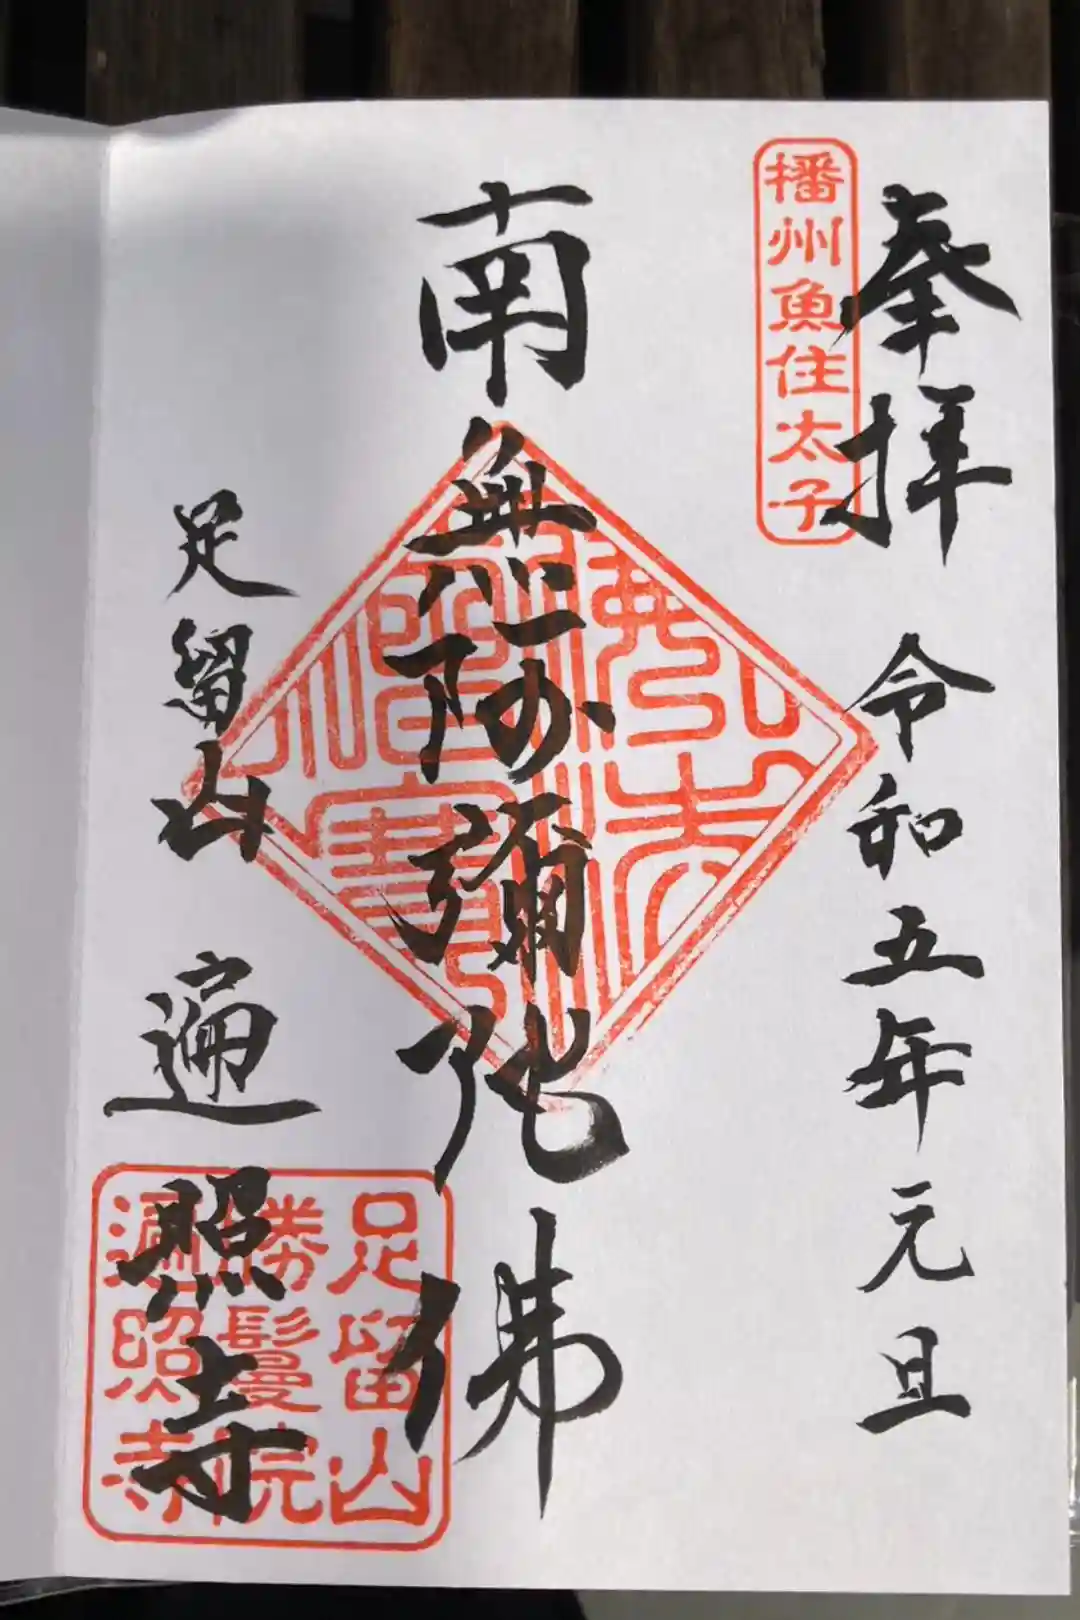 奉拝 令和五年元旦
播州魚住太子
南無阿弥陀佛
佛法僧寳
足留山 遍照寺
足留山
勝鬘院
遍照寺